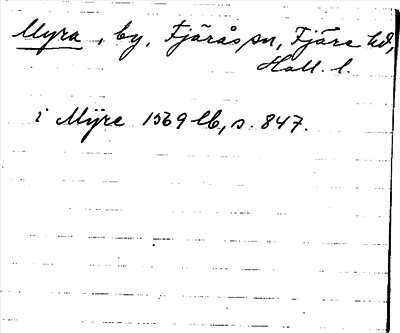 Myra, by, Fjärås sn, Fjäre hd,
Hall. l.
i Mÿre 1569 lb, s. 847.